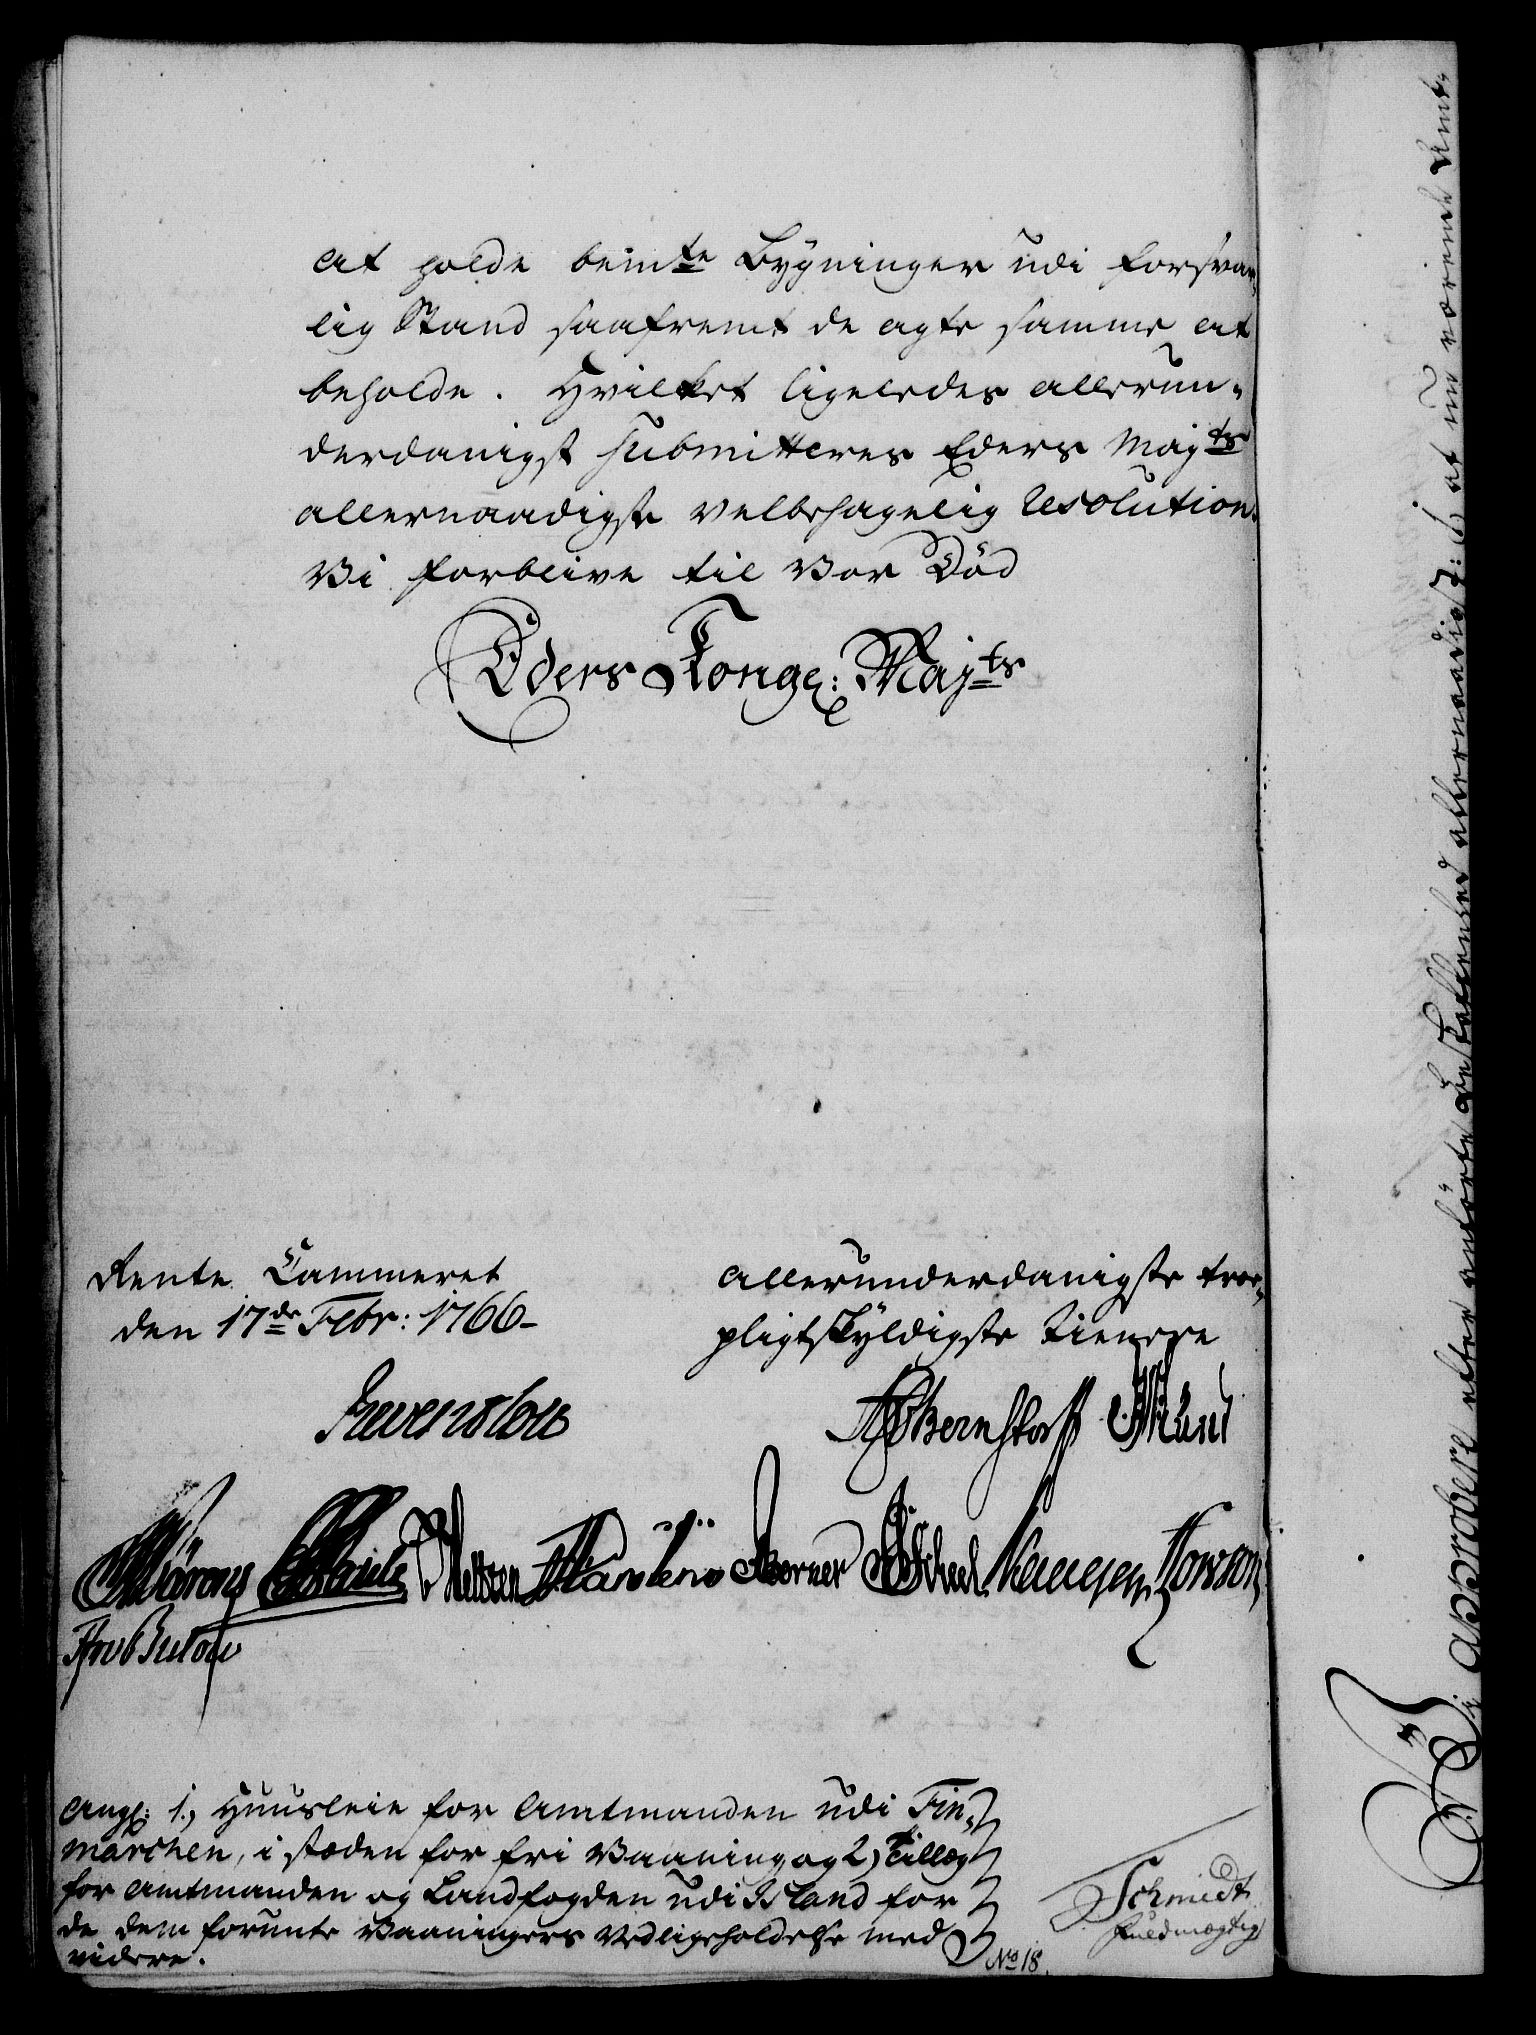 at holde bemte Bygninger udi forsvar,
lig Stand saafremt de agte samme at
beholde. Hvilket ligeledes allerun,
derdanigst submitteres Eders Mayts
allernaadigste velbehagelig Resolution.
Vi forblive til Vor Död
Eders Kongl: Mayts
Rente Cammeret
den 17de Febr: 1766-
allerunderdanigste troe,
pligtskyldigste tienere
Reventlou
Bernstorff
Körner
Bulow
angl: 1, Huusleie for Amtmanden udi Fin,
marchen, i stæden for fri Vaaning og 2) Tillæg
for Amtmanden og Landfogden udi Island for
de dem forunte Vaaningers Vedligeholdelse med
videre.
No 18.
Schmidt
Fuldmægtig
Vi approbere efter anförte Beskaffenhed allernaadigst: 1) at nu værende Amt,